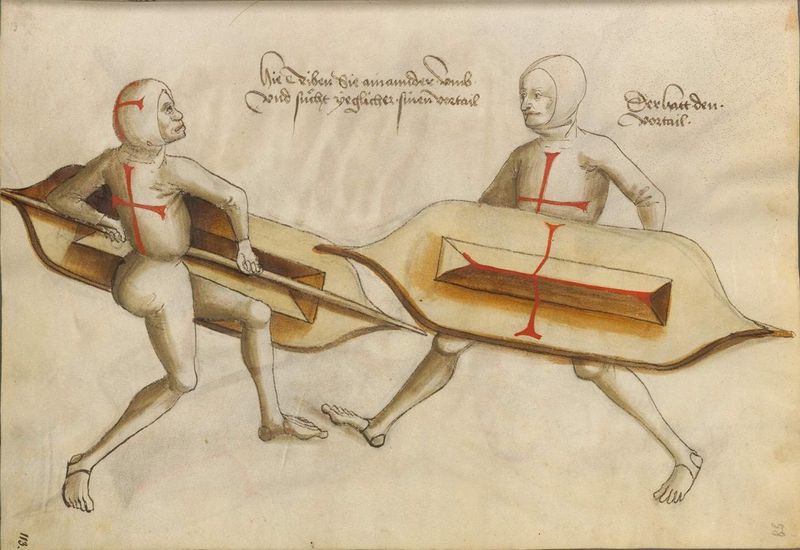 hie Triben Sie ainainder vmb
vnd sücht yeglicher sinen vortail
Der hatt den
vortail
113.